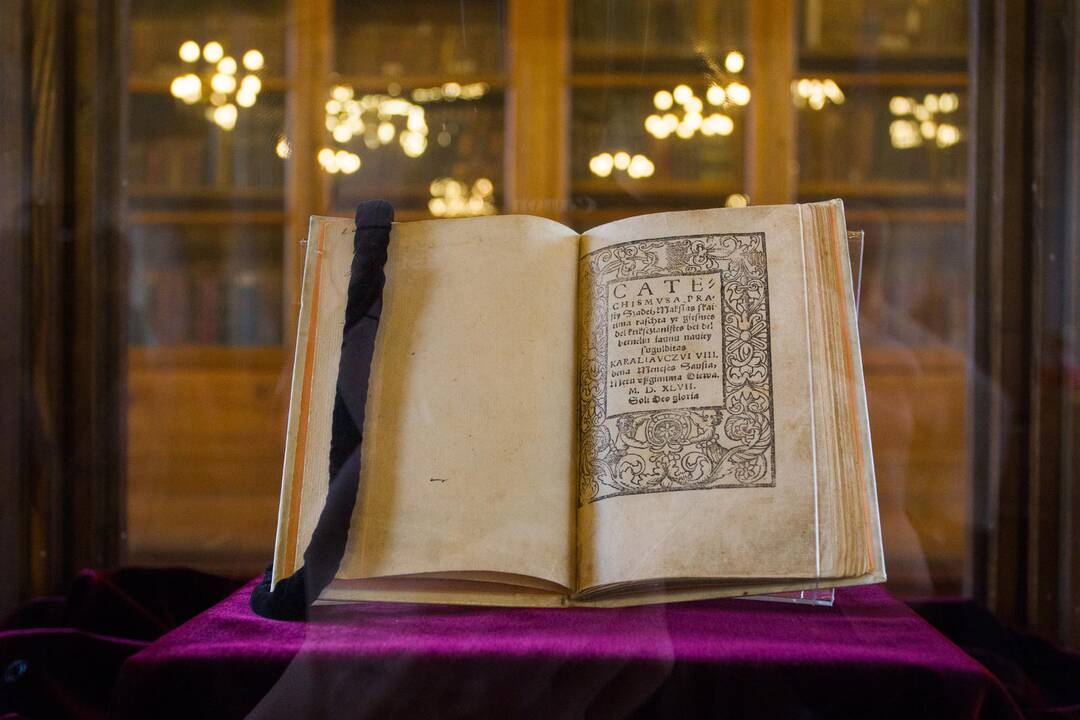 CATE-
CHISMVSA PRA-
sty Szadei, Makslas skai-
tima raschta yr giesmes
del krikschianistes bei del
berneliu iaunu nauiey
sugulditas
KARALIAVCZVI VIII.
dena Meneses Sausia,
Metu vßgimima Diewa.
M. D. XLVII.
Soli Deo gloria